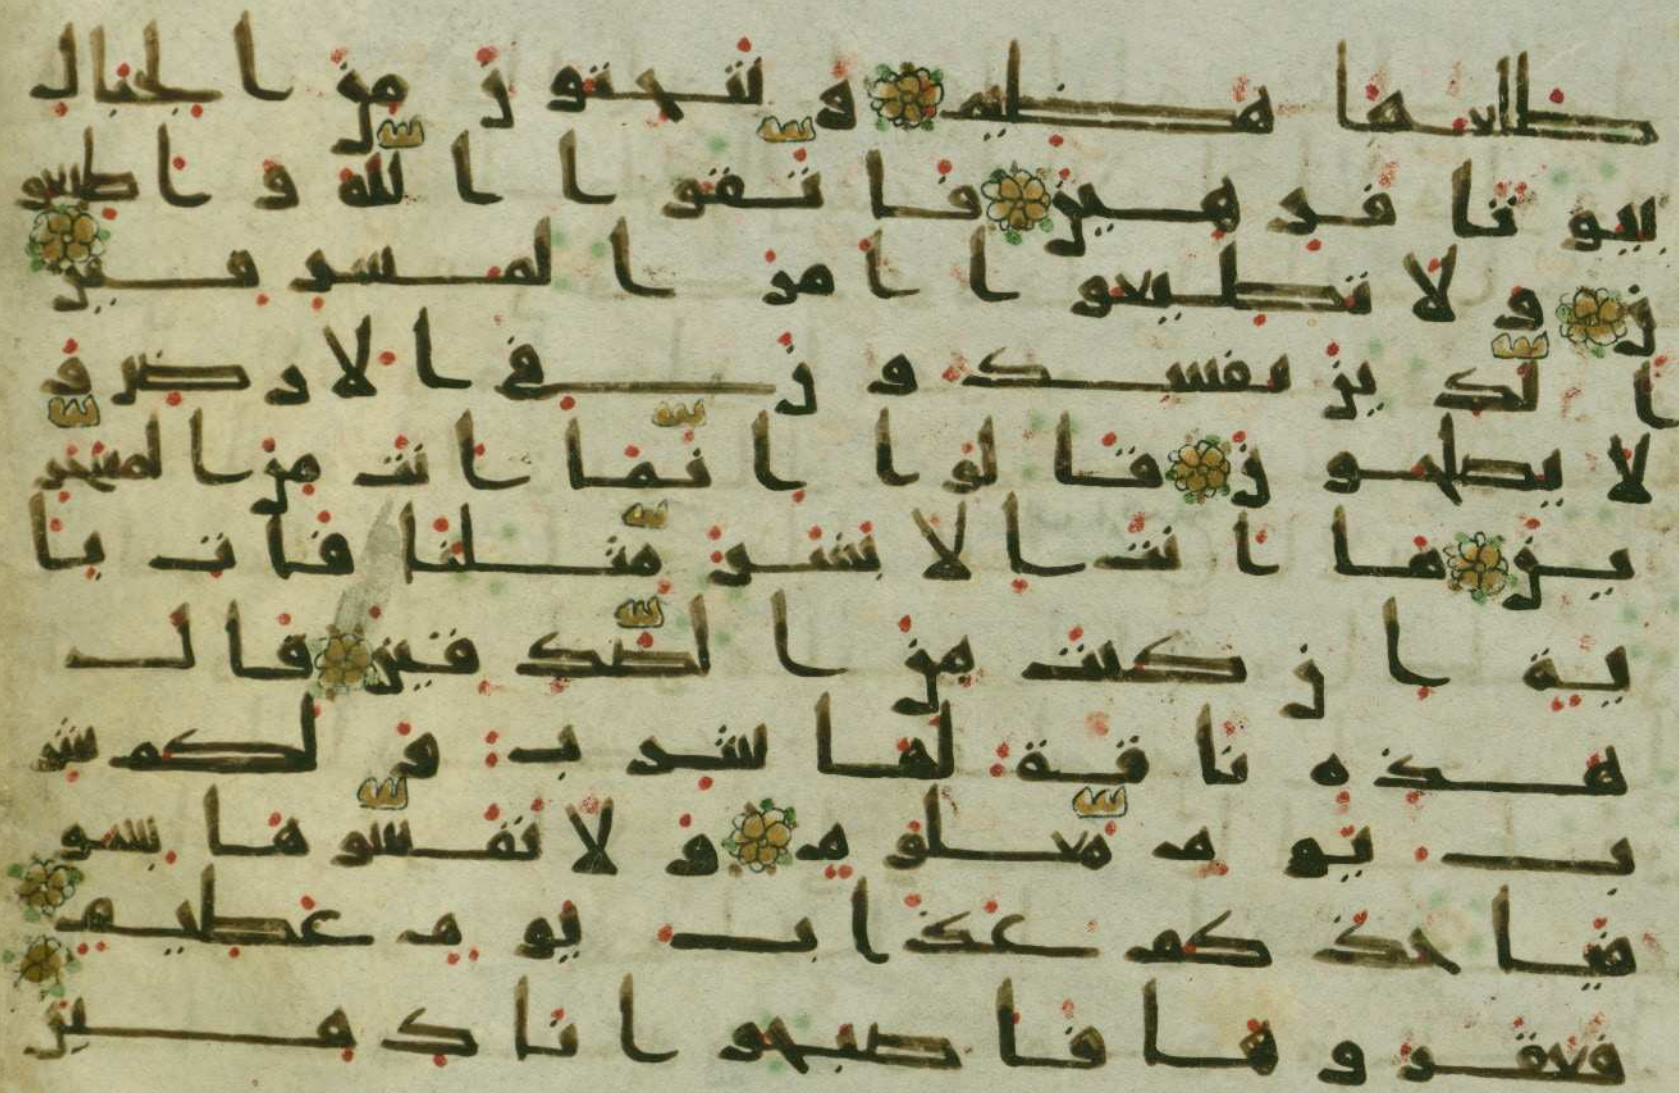 طلعها هضيم وتنحتون من الجبال
بيوتا فرهين فاتقوا الله واطيعو
ن ولا تطيعوا امر المسرفين
الذين يفسدون في الارض و
لا يصلحون قالوا انما انت من المسحر
ين ما انت الا بشر مثلنا فات با
ية ان كنت من الصدقين قال
هذه ناقة لها شرب ولكم شر
ب يوم معلوم ولا تمسوها بسو
فياخذكم عذاب يوم عظيم
فعقروها فاصبحوا نادمين